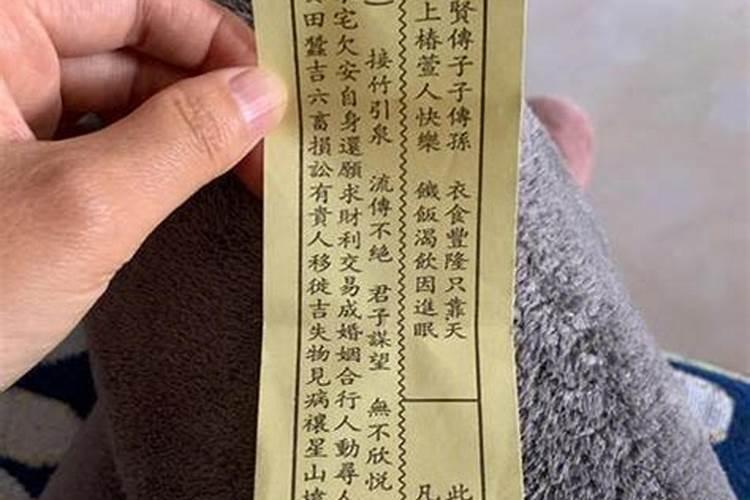 賢傳子子傳孫 衣食豐隆只靠天 此
上椿萱人快樂 饑飯渴飲因進眠 凡
接竹引泉 流傳不絕 君子謀望 無不欣悅
宅欠安自身還願求財利交易成婚姻合行人動尋人
田蠶吉六畜損訟有貴人移徙吉失物見病禳星山墳